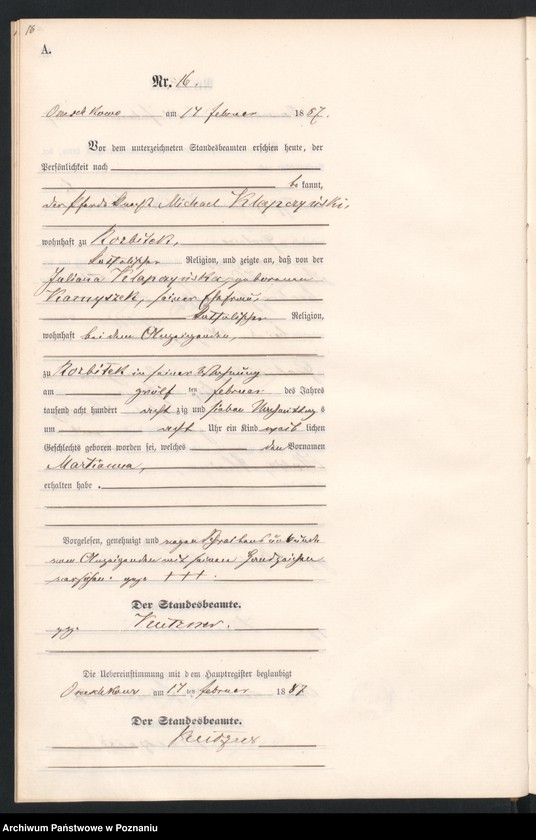 16
A.
Nr. 16.
am 17 februar 1887.
Vor dem unterzeichneten Standesbeamten erschien heute, der
Persönlichkeit nach
bekannt,
der Pferdeknecht Michael Klapczyński,
wohnhaft zu Rozbitek,
katholischer Religion, und zeigte an, daß von der
Juliana Klapczyńska geborenen
seiner Ehefrau,
katholischer Religion,
wohnhaft bei dem Anzeigenden,
zu Rozbitek in seiner Wohnung
am zwölf ten februar des Jahres
tausend acht hundert acht zig und sieben Nachmittags
um acht Uhr ein Kind weib lichen
Geschlechts geboren worden sei, welches den Vornamen
Marianna,
erhalten habe.
Vorgelesen, genehmigt und wegen Schreibensunkunde
vom Anzeigenden mit seinem Handzeichen
versehen. gez. +++.
Der Standesbeamte.
gez.
Die Uebereinstimmung mit dem Hauptregister beglaubigt
am 17 ten februar 1887.
Der Standesbeamte.
Archiwum Państwowe w Poznaniu